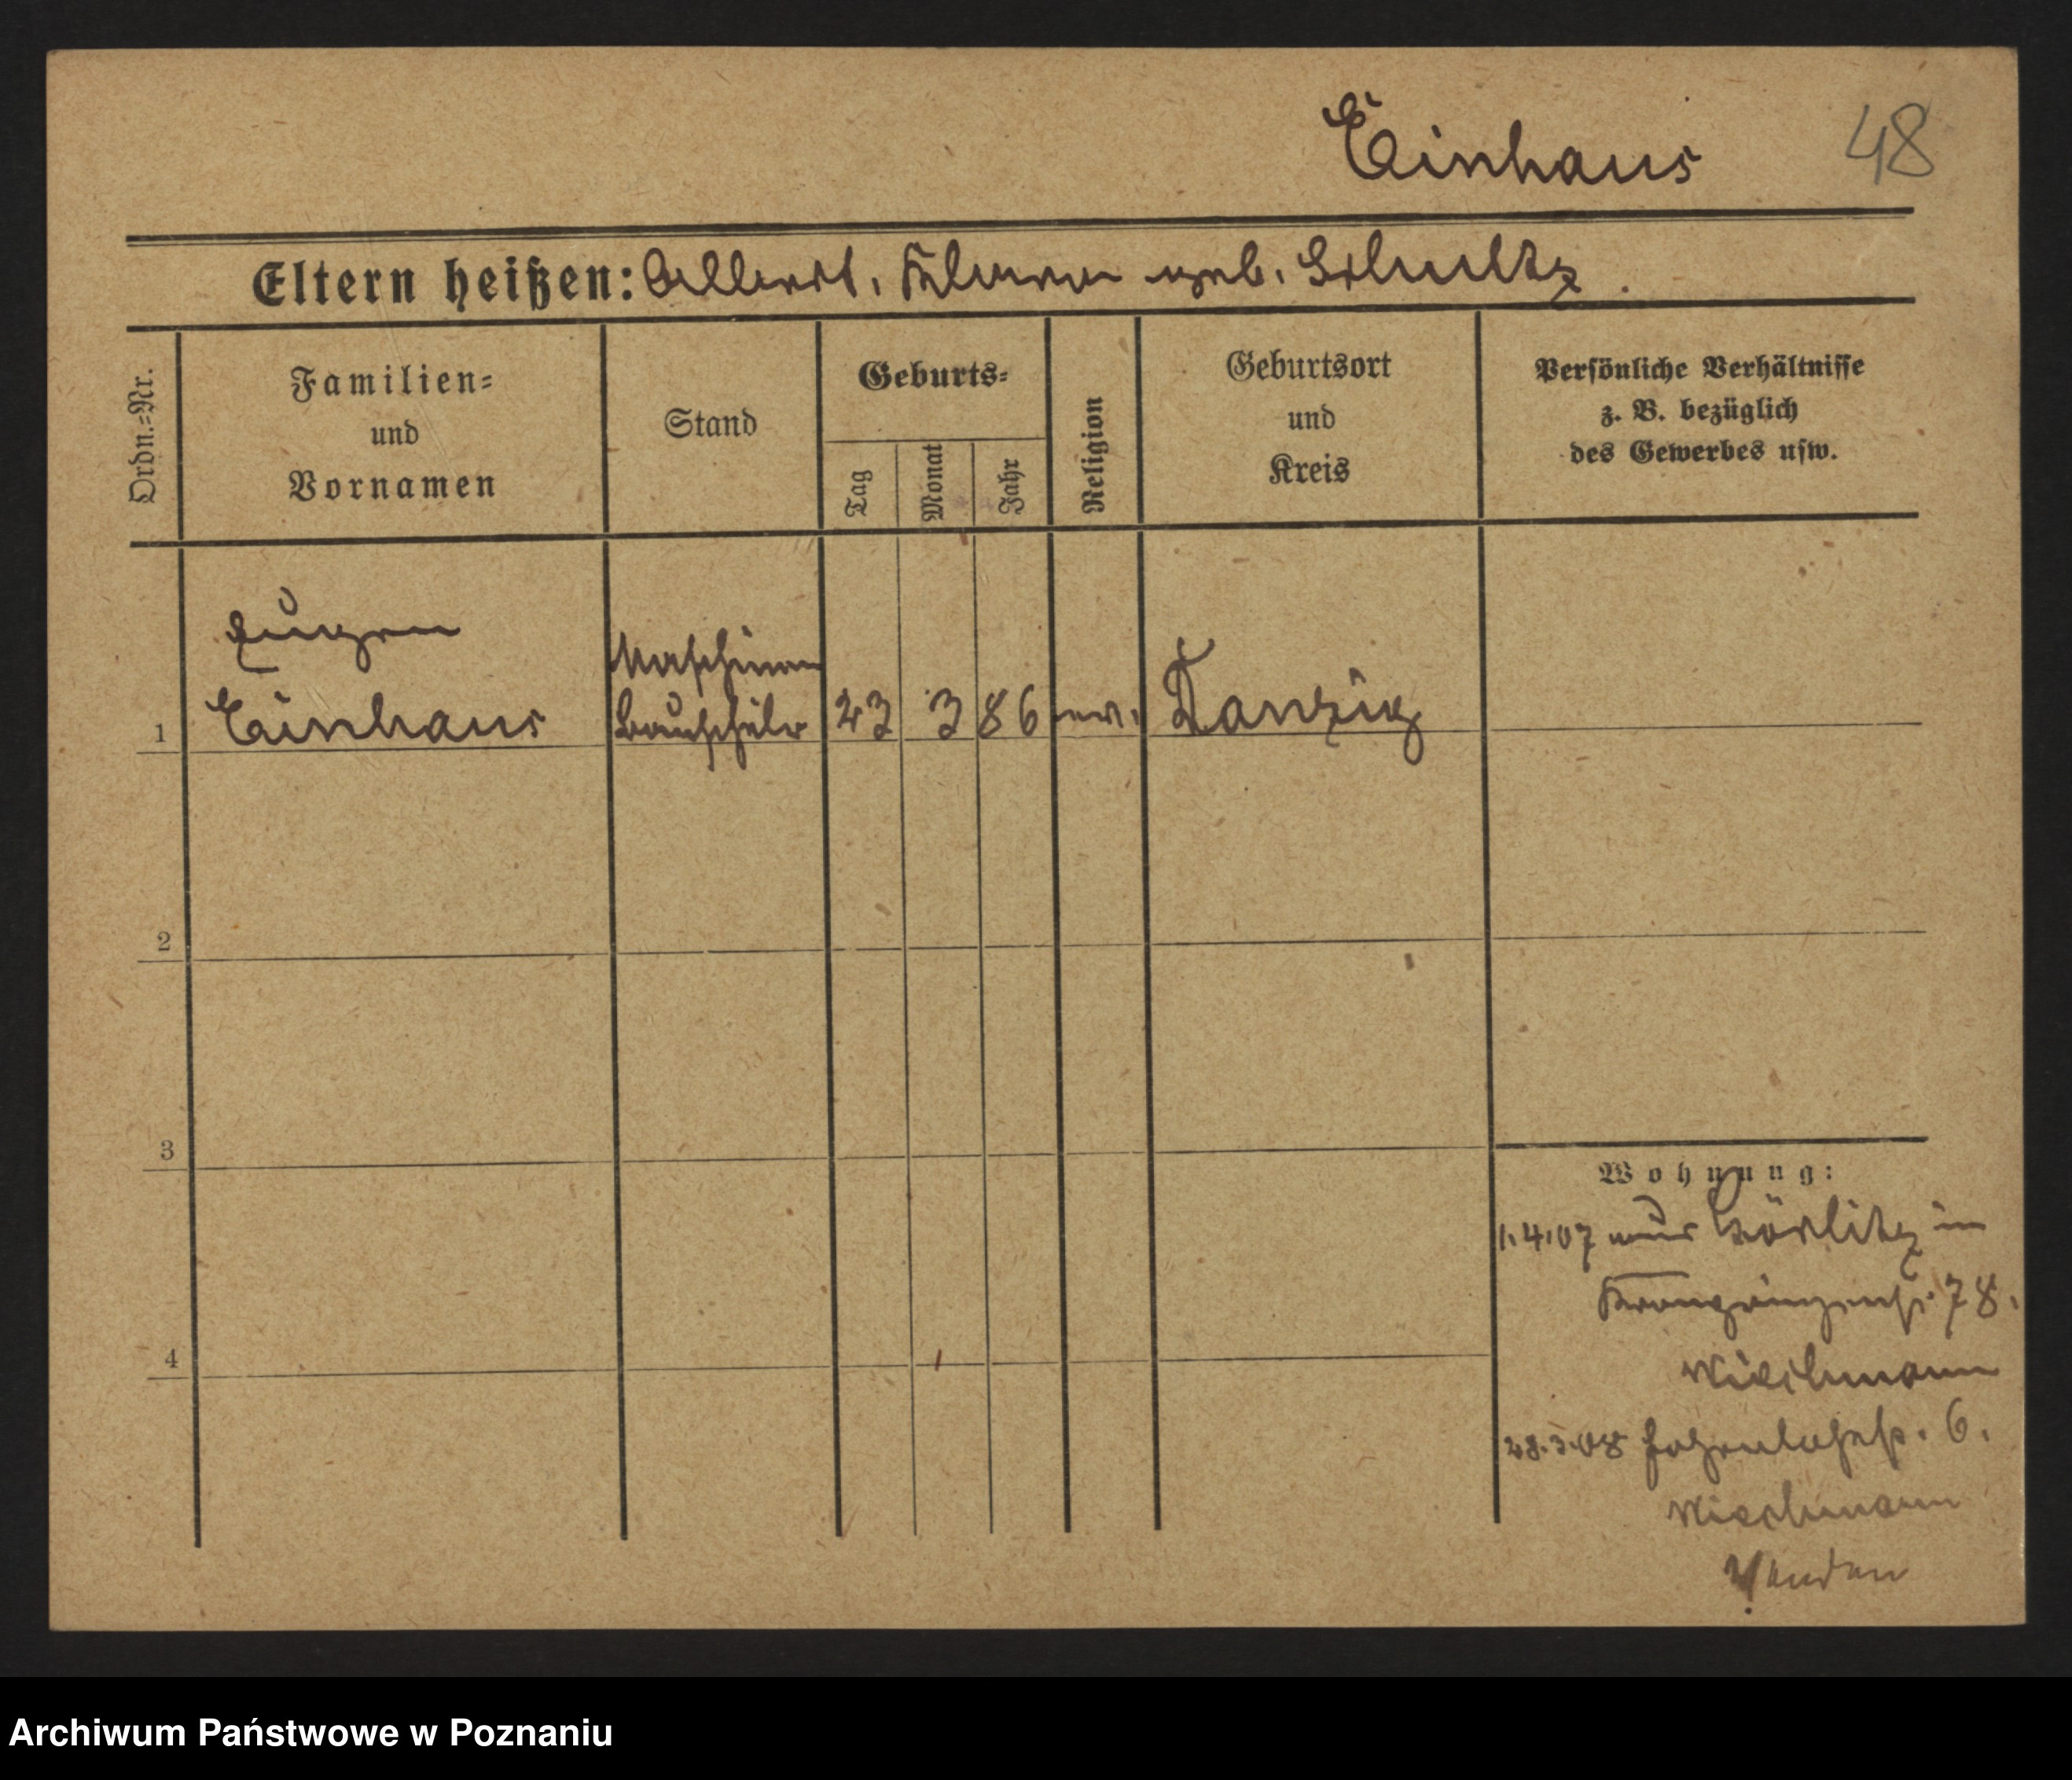 Einhaus 48
Eltern heißen: Albert, Klara geb. Schultz.
Ordn.=Nr.
Familien=
und
Vornamen
Stand
Geburts=
Tag
Monat
Jahr
Religion
Geburtsort
und
Kreis
Persönliche Verhältnisse
z. B. bezüglich
des Gewerbes usw.
Eugen
Einhaus
Maschinen
bauschüler
1 23 3 86 ev. Danzig
2
3
4
Wohnung:
1.4.07 aus Görlitz in
Kronprinzenst. 78.
Wiechmann
28.3.08 6.
Wiechmann
Archiwum Państwowe w Poznaniu